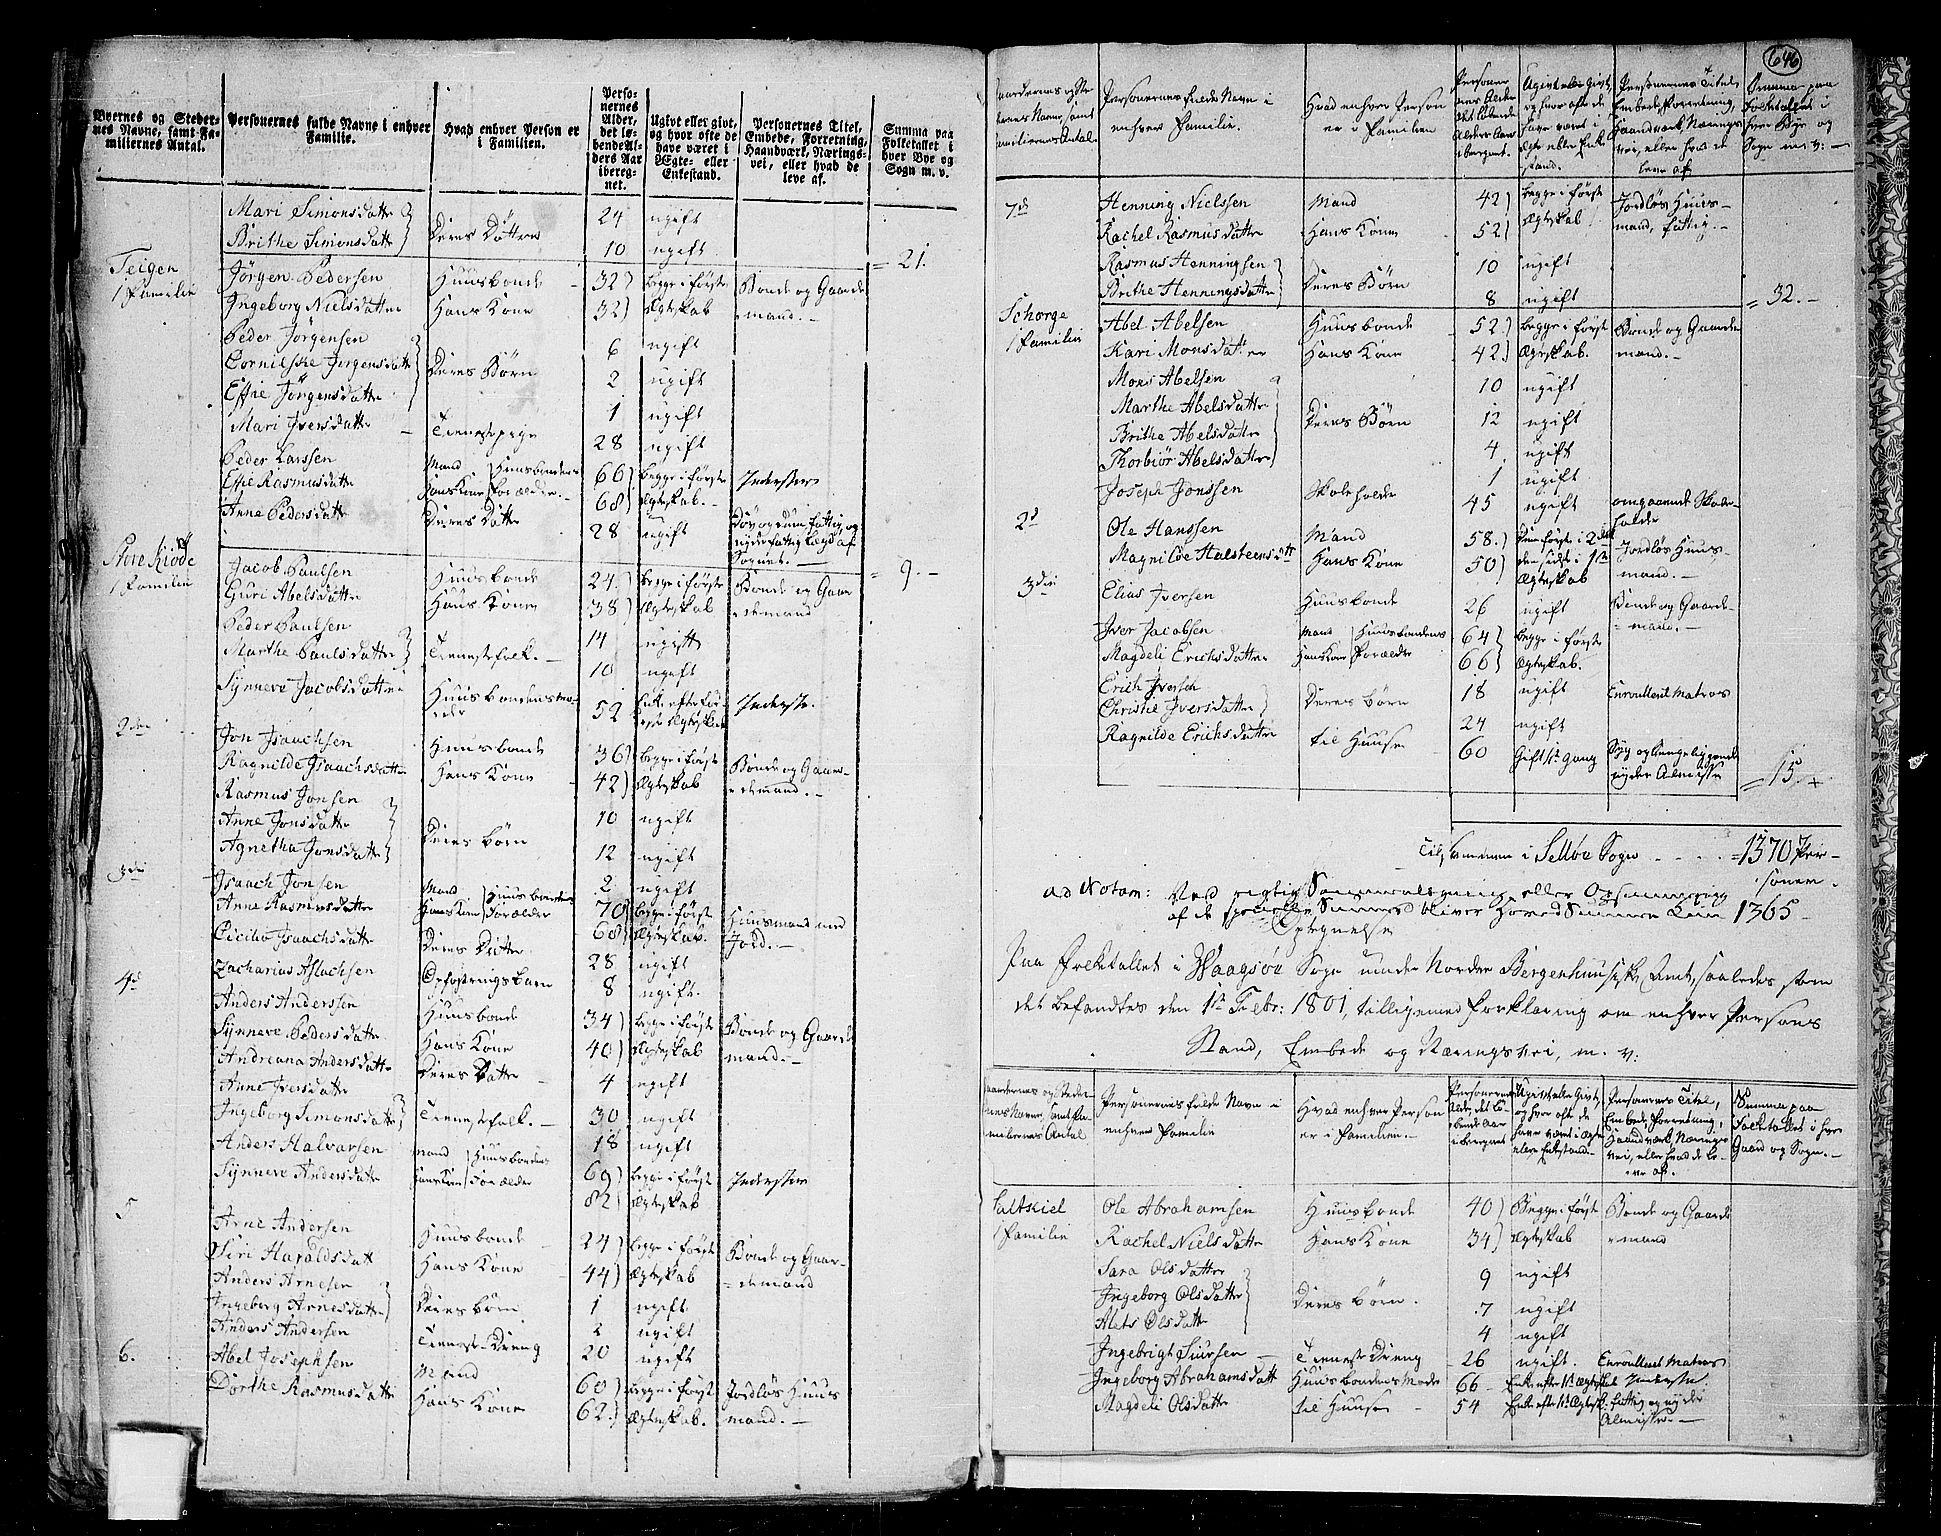 Byernes og Stedernes Navne, samt Familiernes Antal.
Personernes fulde Navne i enhver Familie.
Hvad enhver Person er i Familien.
Personernes Alder, det løbende Alders Aar iberegnet.
Ugivt eller givt, og hvor ofte de have været i Ægte- eller Enkestand.
Personernes Titel, Embede, Forretning, Haandværk, Næringsvei, eller hvad de leve af.
Summa paa Folketallet i hver Bye og Sogn m. v.
Mari Simonsdatter } Deres Døttre 24 ugift
Brithe Simonsdatter } 10 ugift = 21.
Teigen
1 Familie
Jörgen Pedersen Huusbonde 32) begge i første Bonde og Gaard-
Ingeborg Nielsdatter Hans Kone 32) Ægteskab mand.
Peder Jörgensen 6 ugift
Cornilske Jörgensdatter } Deres Börn 2 ugift
Effie Jörgensdatter 1 ugift
Mari Iversdatter Tienestepige 28 ugift
Peder Larssen Mand } Huusbondens 66) begge i første Inderster
Effie Rasmusdatter Hans Kone } Forældre 68) Ægteskab.
Anne Pedersdatter Deres Datter 28 ugift Döv og dum, fattig og nyder fattig Lægd af Sognet. = 9.
1 Familie
Jacob Paulsen Huusbonde 24) begge i første Bonde og Gaar-
Guri Abelsdatter Hans Kone 38) Ægteskab demand
Peder Paulsen 14 ugift
Marthe Paulsdatter } Tienestefolk. 10 ugift
Synneve Jacobsdatter Huusbondens Moder 52 Enke efter første Ægteskab Inderste.
2den
Jon Isaachsen Huusbonde 36) begge i første Bonde og Gaar-
Ragnilde Isaachsdatter Hans Kone 42) Ægteskab demand.
Rasmus Jonsen 10 ugift
Anne Jonsdatter } Deres börn 12 ugift
Agnetha Jonsdatter 2 ugift
3die
Isaach Jonsen Mand } Huusbondens 70) begge i første Huusmand med
Anne Rasmusdatter Hans Kone } Forældre 68) Ægteskab. Jord.
Cicilia Isaachsdatter Deres Datter 28 ugift
Zacharias Aslachsen Opfostringsbarn 8 ugift.
4de
Anders Anderssen Huusbonde 34) begge i første Bonde og Gaard-
Synneve Pedersdatter Hans Kone 40) Ægteskab mand.
Andreana Andersdatter Deres Datter 4 ugift
Anne Iversdatter 30 ugift
Ingeborg Simonsdatter } Tienestefolk. 18 ugift
Anders Halvarsen Mand } Huusbondens 69) begge i første Inderster
Synneve Andersdatter Hans Kone } Forældre 82) Ægteskab
5
Arne Andersen Huusbonde 24) begge i første Bonde og Gaar-
Siri Haraldsdatt Hans Kone 44) Ægteskab demand
Anders Arnesen 1 ugift
Ingeborg Arnesdatter } Deres börn 2 ugift
Anders Andersen Tieneste-Dreng 20 ugift
6.
Abel Josephsen Mand 60) begge i først Jordløs Huus-
Dorthe Rasmusdatter Hans Kone 62) Ægteskab. mand.
646
Gaardernes og Stedernes Navne, samt Familiernes Antal
Personernes fulde Navne i enhver Familie.
Hvad enhver Person er i Familien
Personernes Alder det løbende Alders Aar iberegnet.
Ugivt eller Givt, og hvor ofte de have været i Ægte eller Enke stand.
Personernes Titel, Embede, Forretning, Haandværk, Næringsvei, eller hvad de leve af
Summa paa Folketallet i hver Bye og Sogn m: v:
7de
Henning Nielssen Mand 42) begge i første Jordløs Huus-
Rachel Rasmusdatter Hans Kone 52) Ægteskab mand, fattig.
Rasmus Henningsen } Deres Börn 10 ugift
Brithe Henningsdatter 8 ugift = 32.
Schorge
1 Familie
Abel Abelsen Huusbonde 52) begge i første Bonde og Gaarde-
Kari Monsdatter Hans Kone 42) Ægteskab. mand.
Mons Abelsen 10 ugift
Marthe Abelsdatter } Deres Börn 12 ugift
Brithe Abelsdatter 4 ugift
Thorbiör Abelsdatter 1 ugift
Joseph Jonssen Skoleholder 45 ugift omgaaende Skoleholder
2d
Ole Hanssen Mand 58) Den første i 2det Jordløs Huus-
Magnilde Halsteensdtt Hans Kone 50) den sidste i 1te Ægteskab mand.
3die
Elias Iversen Huusbonde 26 ugift Bonde og Gaarde-mand.
Iver Jacobsen Mand } Huusbondens 64) begge i første
Magdeli Erichsdatter Hans Kone } Forældre 66) Ægteskab.
Erich Iversen } Deres börn 18 ugift Enroulleret Matros
Christie Iversdatter 24 ugift
Ragnilde Erichsdatter til Huuse 60 Gift 1te Gang Syg og Sengeliggende nyder Almisse = 15.
Tilsammen i Selløe Sogn = 1370 Personer
ad Notam: Ved rigtig Sammenlægning eller Opsummering
af de specielle Summer bliver Hoved Summen kun 1365
Optegnelse
Paa Folketallet i Waagsøe Sogn under Nordre Bergenhuusiske Amt, saaledes som
det befandtes den 1te Febr: 1801, tilligemed Forklaring om enhver Persons
Stand, Embede og Næringsvei, m. v:
Gaardernes og Stedernes Navne, Samt Familiernes Antal
Personernes fulde Navne i enhver Familie
Hvad enhver Person er i Familien.
Personernes Alder, det løbende Aar iberegnet
Ugivt eller Givt, og hvor ofte de have været i Ægte eller Enkestand.
Personernes Titel, Embede, Forretning, Haandværk, Næringsvei, eller hvad de leve af.
Summa paa Folketallet i hver Gaard og Sogn.
Saltskiel
1 Familie
Ole Abrahamsen Huusbonde 40) Begge i første Bonde og Gaarde-
Rachel Nielsdatter Hans Kone 34) Ægteskab mand
Sara Olsdatter 9 ugift
Ingeborg Olsdatter } Deres börn. 7 ugift
Alets Olsdatter 4 ugift
Ingebrigt Siursen Tieneste Dreng 26 ugift. Enroulleret Matros
Ingeborg Abrahamsdatt Huusbondens Moder 66 Enke efter 1te Ægteskab Inderste
Magdeli Olsdatter til Huuse 54 Enke efter 1te Ægteskab. fattig og nyder Almisse.